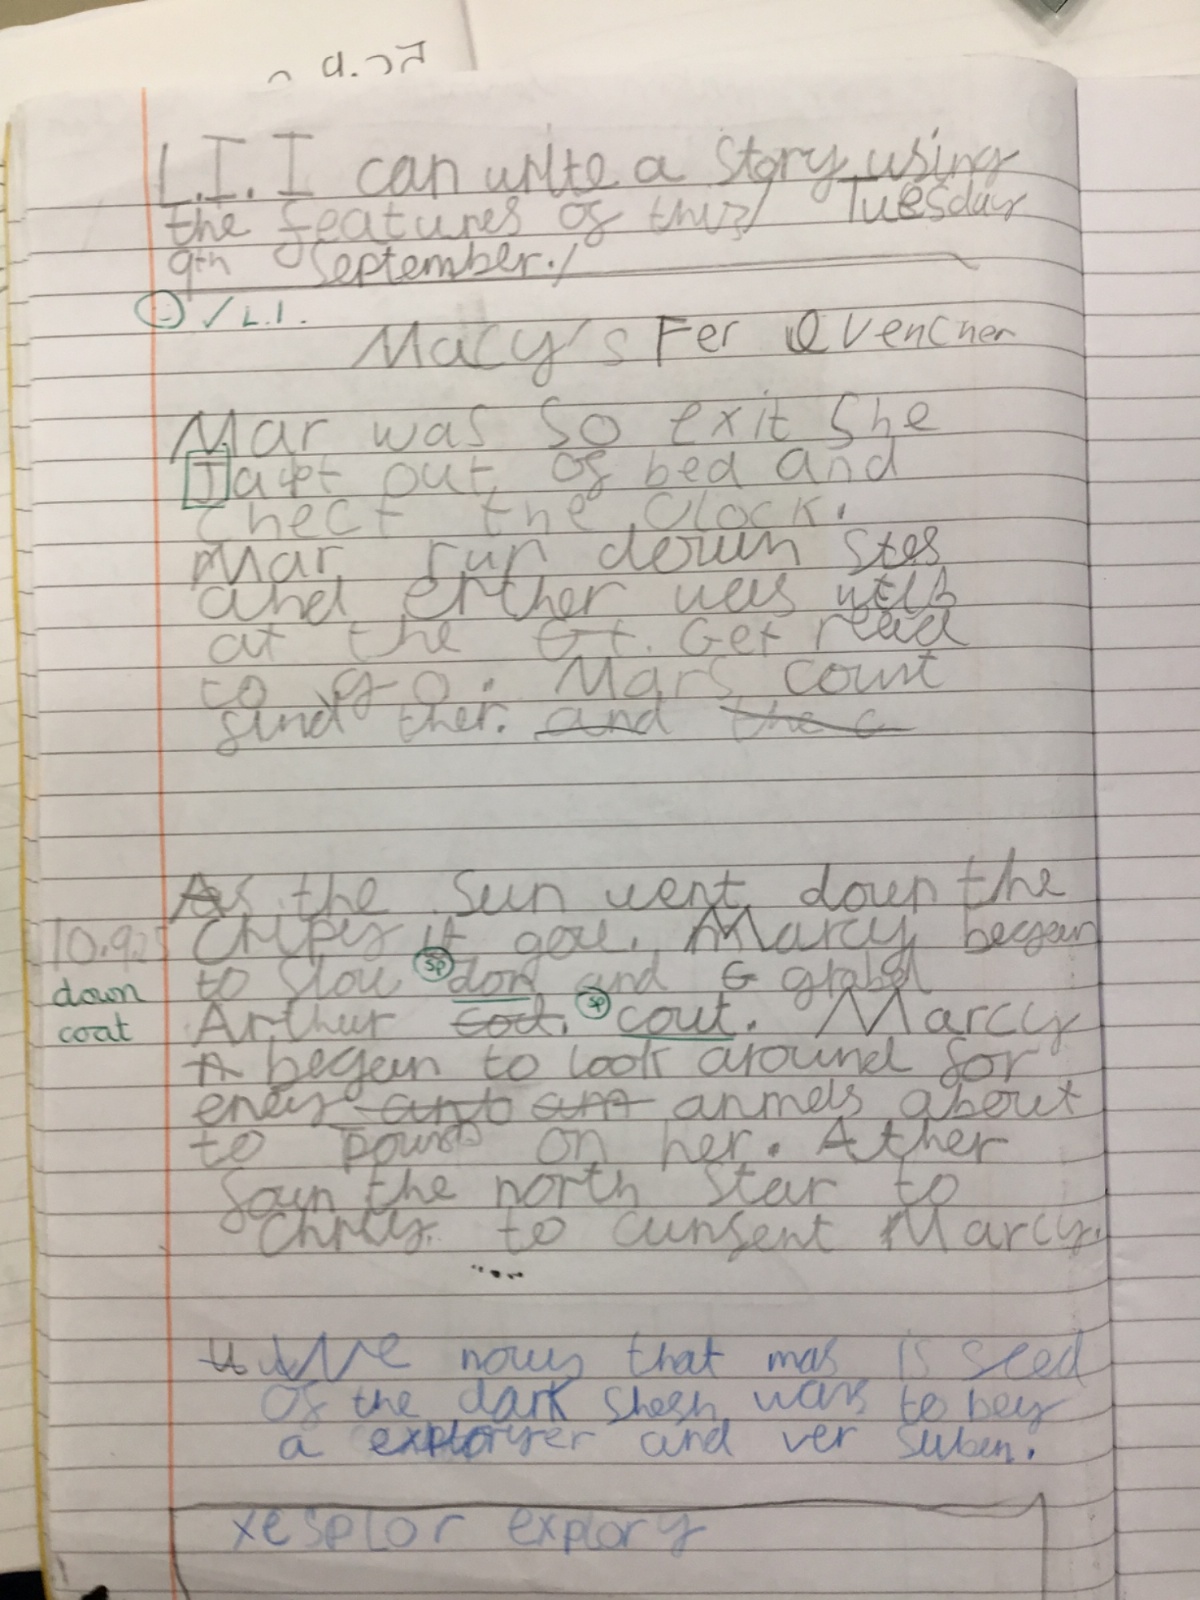 L.I. I can write a story using
the features of this/ Tuesday
9th September./
✓ L.I.
Macy's Fer
Mar was so exit she
Japt out of bed and
check the clock.
Mar run down stes
and erther was
at the Get read
to go. Mars count
find ther. and the a
As the sun went down the
it gou. Marcy began
10.9.25
to slow sp don and G grabd
down
Arthur cot. sp cout. Marcy
coat
A began to look around for
eney anmels about
to on her. Ather
foun the north star to
to cunsent Marcy.
....
We nouy that mas is sced
of the dark shesh wans to bey
a exployer and ver suben.
xesplor explory